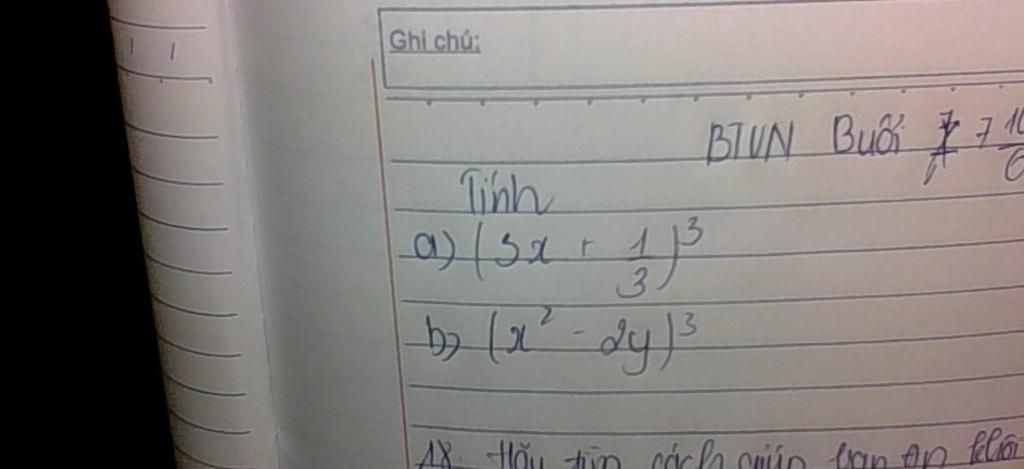 Ghi chú:
BTVN Buổi 7
Tính
a) (3x + 1/3)³
b) (x² - 2y)³
18. Hãy tìm cách giúp bạn An